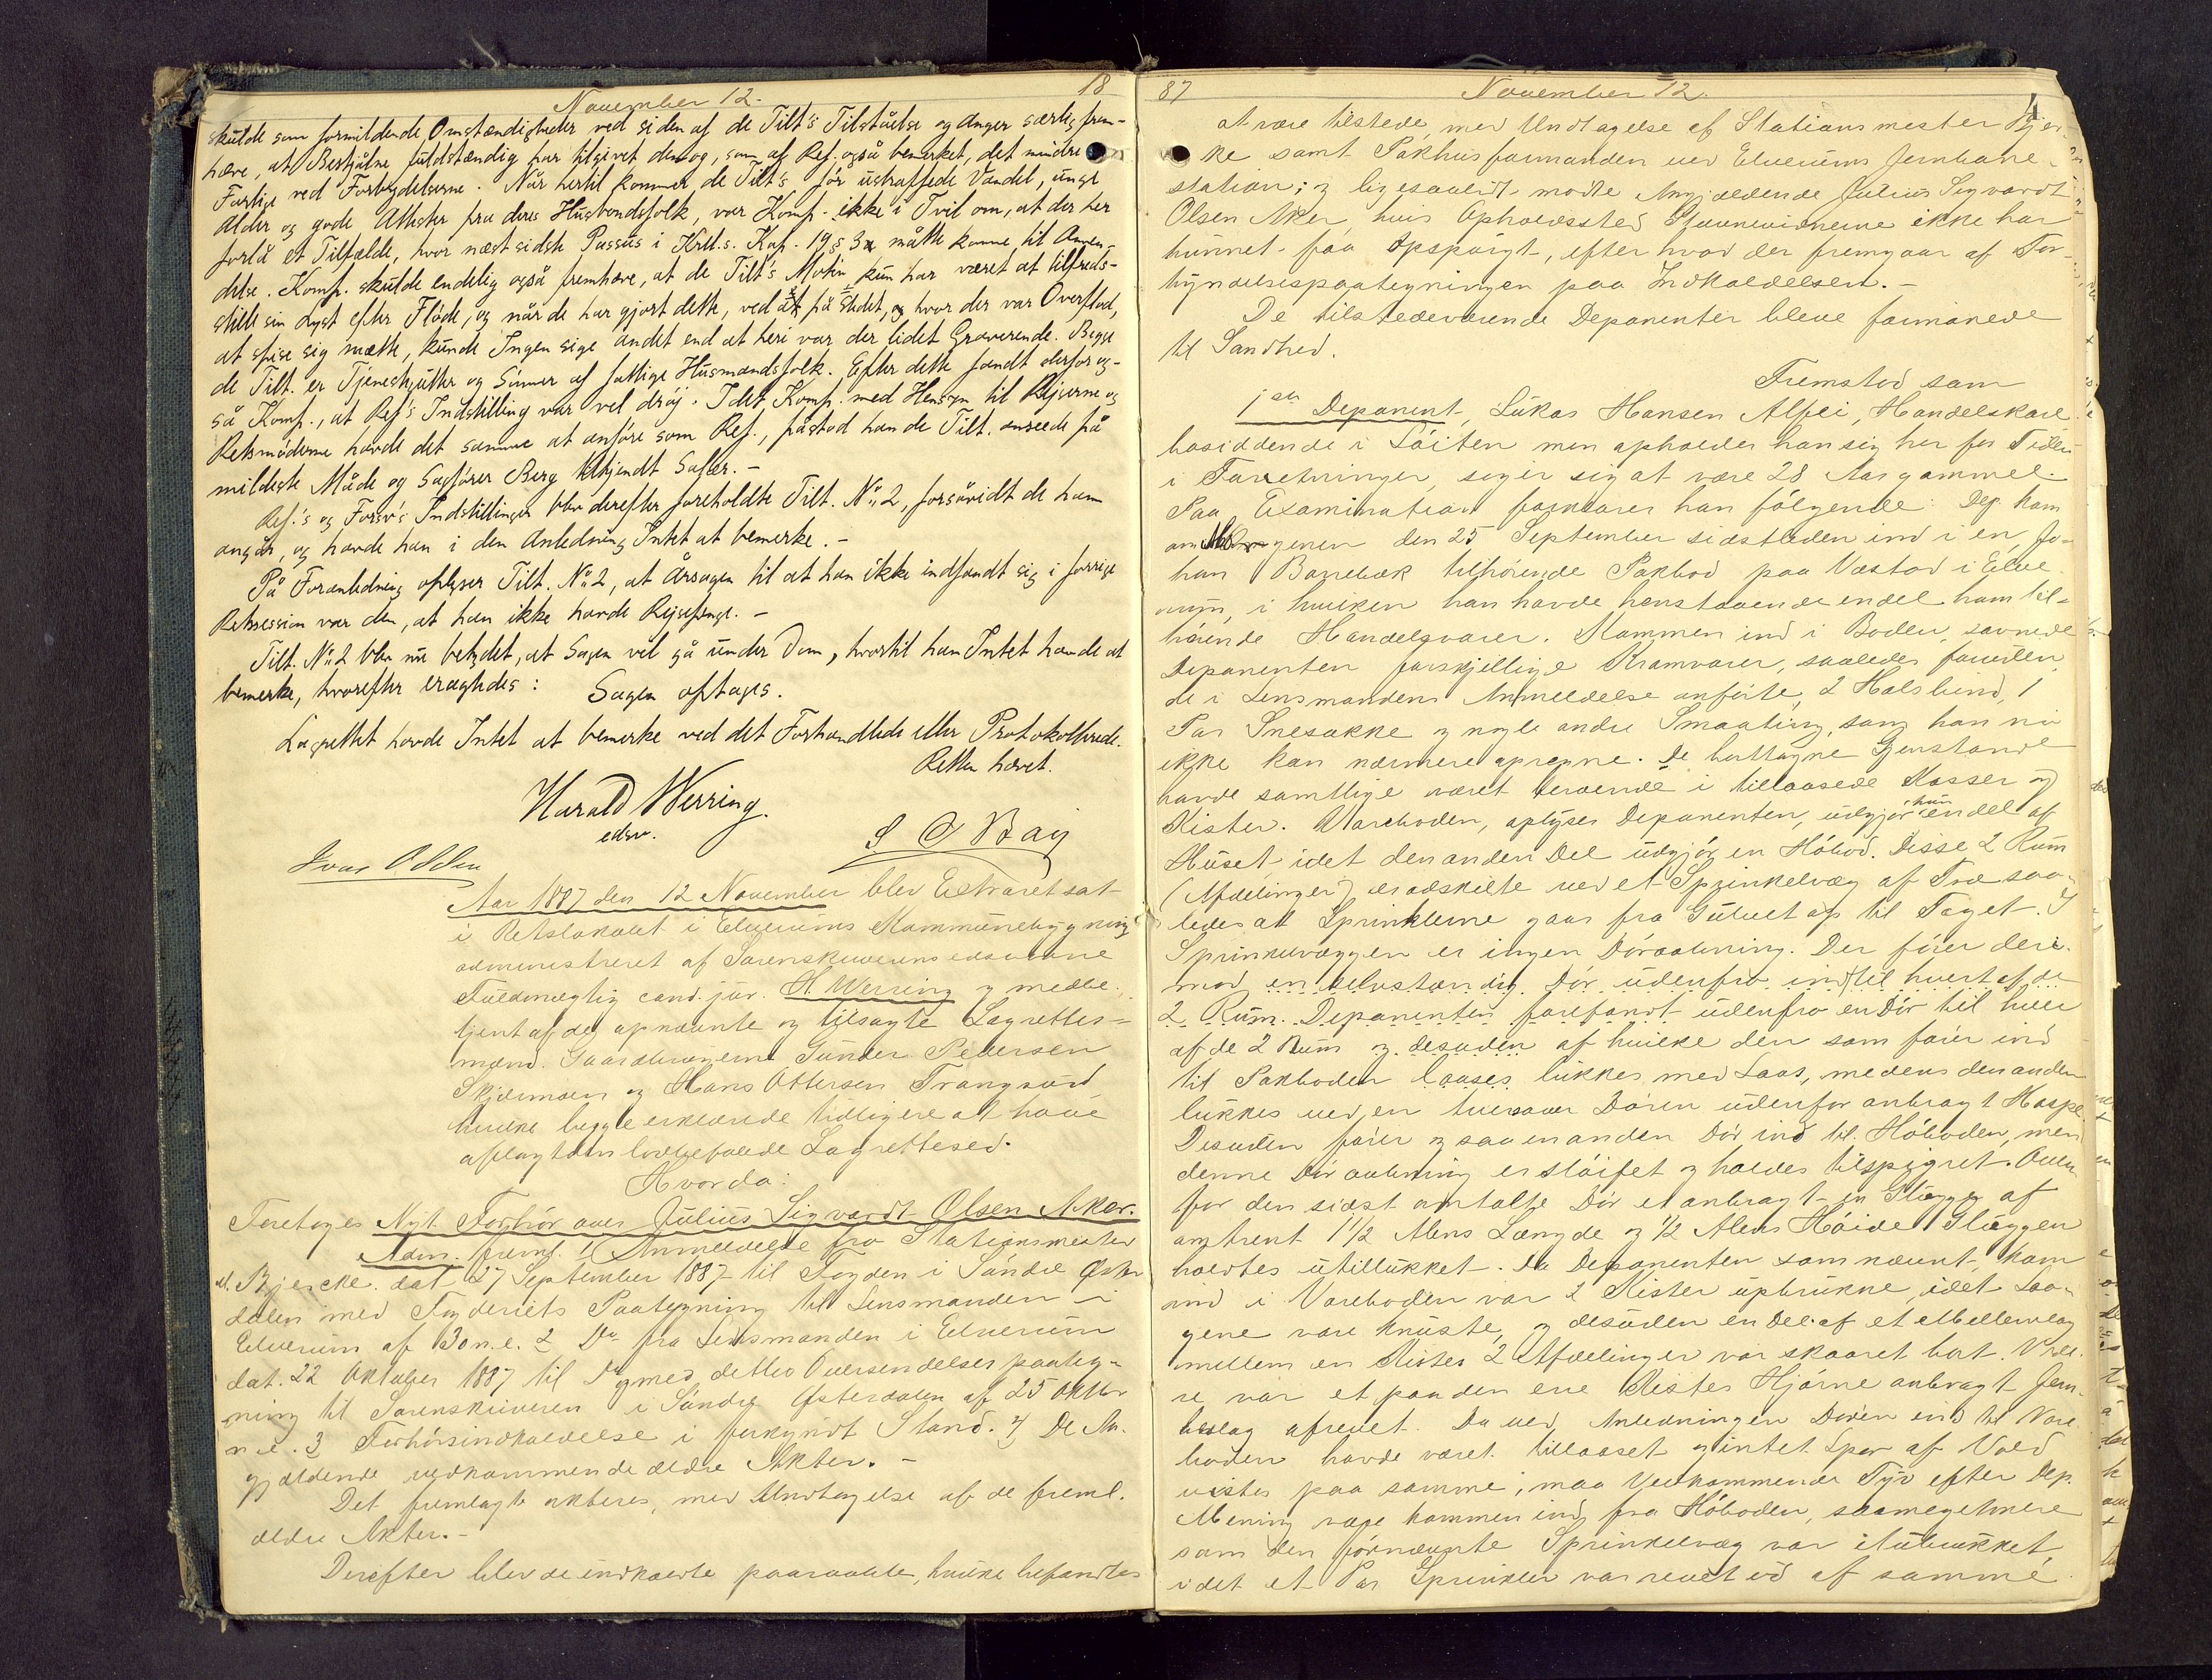 November 12.
18
skulde som formildende Omstændigheder ved siden af de Tilt's Tilståelse og Anger særlig frem-
hæve, at Bestjålne fuldstændig har tilgivet dem og, som af Ref. også bemerket, det mindre
Farlige ved Forbrydelserne. Når hertil kommer de Tilt's før ustraffede Vandel, unge
Alder og gode Attester fra deres Husbondsfolk, var Komp. ikke i Tvil om, at der her
forlå et Tilfælde, hvor næst sidste Passus i Krll.s. Kap. 19 § 3 måtte komme til Anven-
delse. Komp. skulde endelig også fremhæve, at de Tilt's Motiv kun har været at tilfreds-
stille sin Lyst efter Fløde, og når de har gjort dette, ved at på Stedet, og hvor der var Overflod,
at spise sig mætte, kunde Ingen sige andet end at heri var der lidet Graverende. Begge
de Tilt. er Tjenestgutter og Sønner af fattige Husmandsfolk. Efter dette fandt derfor og-
så Komp., at Ref's Indstilling var vel drøj. Idet Komp. med Hensyn til Rejserne og
Retsmøderne havde det samme at anføre som Ref., påstod han de Tilt. anseede på
mildeste Måde og Sagfører Berg tilkjendt Salær.-
Ref.'s og Forsv's Indstillinger blev derefter foreholdte Tilt. No 2, forsåvidt de ham
angår, og havde han i den Anledning Intet at bemerke.-
På Foranledning oplyser Tilt. No 2, at Årsagen til at han ikke indfandt sig i forrige
Retssession var den, at han ikke havde Rejsepenge.-
Tilt. No 2 blev nu betydet, at Sagen vil gå under Dom, hvortil han Intet havde at
bemerke, hvorefter eragtedes: Sagen optages.
Lagrettet havde Intet at bemerke ved det Forhandlede eller Protokollerede.
Retten hævet.
Harald Werring.
edsv.
Ivar Odden
Aar 1887 den 12 November blev Extraret sat
i Retslokalet i Elverums Kommunebygning
administreret af Sorenskriverens edsvorne
Fuldmægtig cand. jur. H. Werring og medbe-
tjent af de opnævnte og tilsagte Lagrettes-
mænd Gaardbrugerne Gunder Pedersen
Skjærmoen og Hans Ottersen Trangsrud
hvilke begge erklærede tidligere at have
aflagt den lovbefalede Lagrettesed.
Hvorda:
Foretoges Nyt Forhør over Julius Sigvardt Olsen Aker.
Adm. freml. 1) Anmeldelse fra Stationsmester
M. Bjercke dat 27 September 1887 til Fogden i Søndre Øster
dalen med Fogderiets Paategning til Lensmanden i
Elverum af 30 n.e. 2 Do fra Lensmanden i Elverum
dat. 22 Oktober 1887 til Do med dettes Oversendelsespaateg-
ning til Sorenskriveren i Søndre Østerdalen af 25 Oktbr
n.e. 3 Forhørsindkaldelse i forkyndt Stand. 4) De An-
gjældende vedkommende ældre Akter.-
Det fremlagte akteres, med Undtagelse af de freml.
ældre Akter.-
Derefter blev de indkaldte paaraabte, hvilke befandtes
87
November 12.
at være tilstede, med Undtagelse af Stationsmester Bjer-
ke samt Pakhusformanden ved Elverums Jernbane-
station; og ligesaalidt mødte Angjældende Julius Sigvardt
Olsen Aker, hvis Opholdssted Stevnevidnerne ikke har
kunnet faa opspurgt, efter hvad der fremgaar af For-
kyndelsespaategningen paa Indkaldelsen.-
De tilstedeværende Deponenter bleve formanede
til Sandhed.
Fremstod som
1ste Deponent, Lukas Hansen Alfei, Handelskarl
bosiddende i Løiten men opholder han sig her for Tiden
i Forretninger, siger sig at være 28 Aar gammel.
Paa Examination forklarer han følgende: Dep. kom
om Morgenen den 25 September sidstleden ind i en Jo-
han Bonebæk tilhørende Pakbod paa Vestad i Elve-
rum, i hvilken han havde henstaaende endel ham til-
hørende Handelsvarer. Kommen ind i Boden, savnede
Deponenten forskjellige Kramvarer, saaledes foruden
de i Lensmandens Anmeldelse anførte, 2 Halsbind, 1
Par Snesokke og nogle andre Smaating, som han nu
ikke kan nærmere opregne. De borttagne Gjenstande
havde samtlige været beroende i tillaasede Kasser og
Kister. Vareboden, oplyser Deponenten, udgjør kun endel af
Huset, idet den anden Del udgjør en Høbod. Disse 2 Rum
(Afdelinger) er adskilte ved et Sprinkelvæg af Træ saa-
ledes at Sprinklerne gaar fra Gulvet op til Taget. I
Sprinkelvæggen er ingen Døraabning. Der fører der i-
mod en selvstændig Dør udenfra ind til hvert af de
2 Rum. Deponenten forefandt udenfra en Dør til hver
af de 2 Rum og desuden af hvilke den som fører ind
til Pakboden laases lukkes med Laas, medens den anden
lukkes ved en tversover Døren udenfor anbragt Haspe
Desuden fører ogsaa en anden Dør ind til Høboden, men
denne Døraabning er sløifet og holdes tilspigret. Oven
for den sidst omtalte Dør er anbragt en Glugge af
omtrent 1 1/2 Alens Længde og 1/2 Alens Høide. Gluggen
holdtes utillukket. Da Deponenten som nævnt, kom
ind i Vareboden var 2 Kister opbrukne, idet Laa-
gene vare knuste, og desuden en Del af et Mellemlag
mellem en Kistes 2 Afdelinger var skaaret bort. Vide-
re var et paa den ene Kistes Hjørne anbragt Jern-
beslag afrevet. Da ved Anledningen Døren ind til Vare-
boden havde været tillaaset og intet Spor af Vold
vistes paa samme, maa Vedkommende Tyv efter Dep.
Mening være kommen ind fra Høboden, saameget mere
som den førnævnte Sprinkelvæg var itubrukket,
idet et Par Sprinkler var revet ud af samme